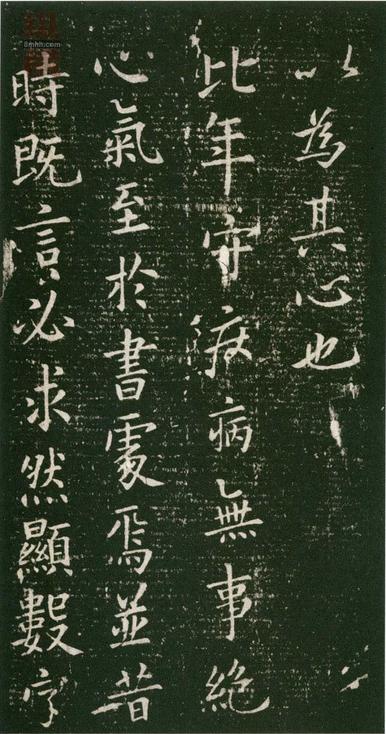 以為其心也
比年守疾病無事絶
心氣至於書處焉並昔
時既言必求然顯數字
8mhh.com